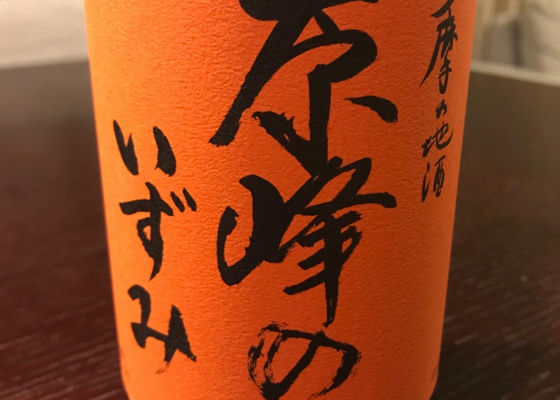 摩の地酒
原峰の
いずみ